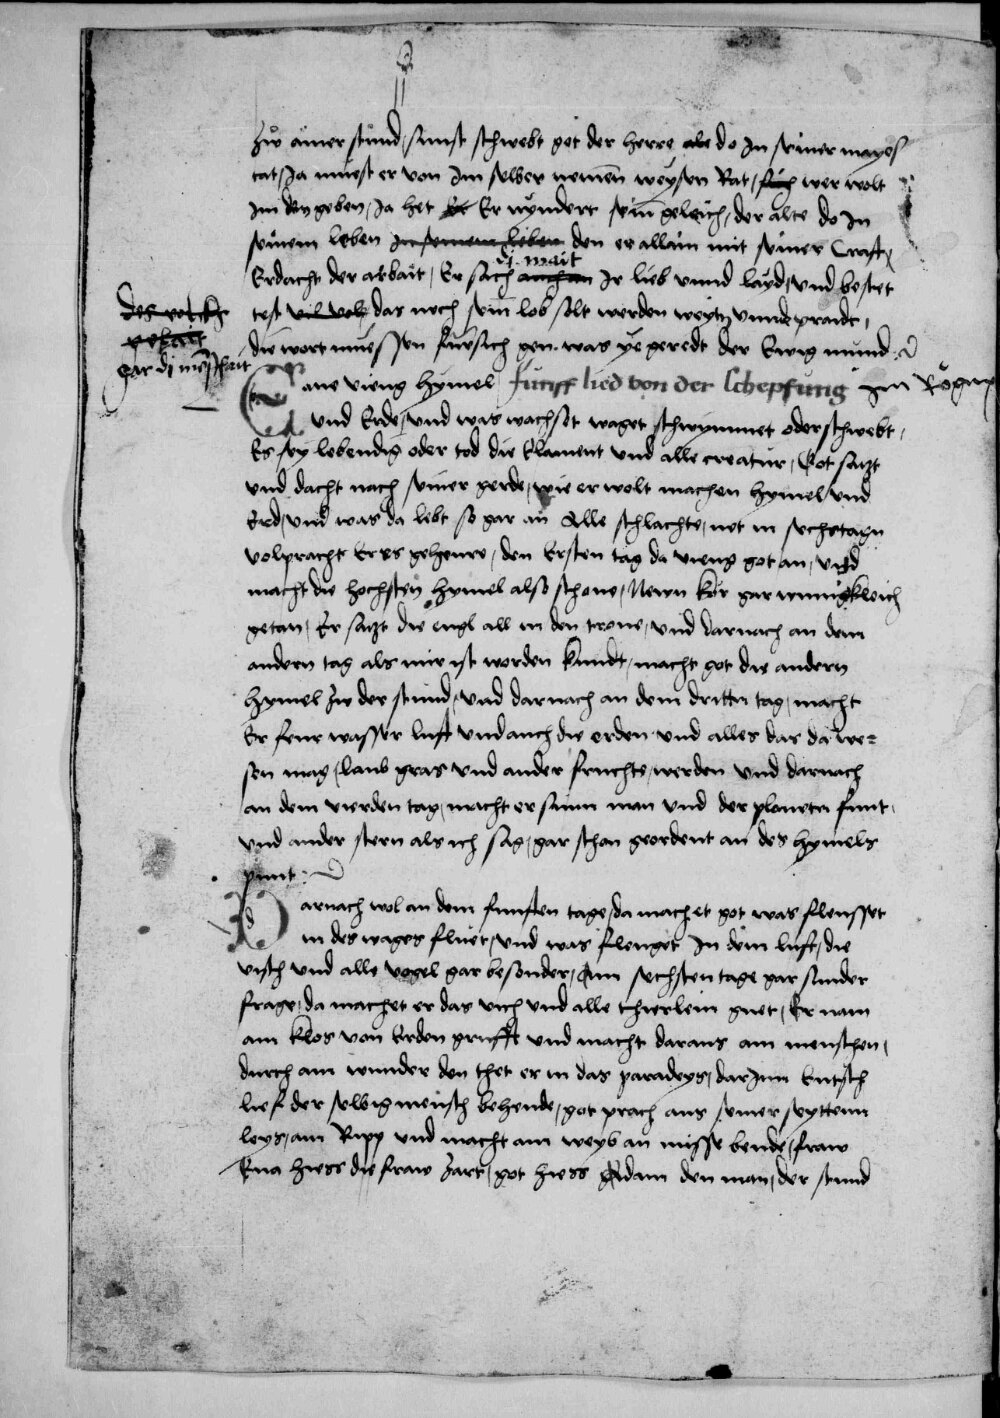 zw ainer stund, sunst schwebt get der herre alle do In seiner mayes
tat, Ja muest er von Im selber nemen weysen Rat, such wer wolt
Im den geben, Ja het Er Er nyndert sein geleich, der alte do In
seinem leben In seinem leben den er allain mit seiner Crafft,
di mait
Erdacht der arbait, Er sach auch an Ir lieb unnd layd, und bestet
des volckh
test vil volck das noch sein lob solt werden weyt unnd praidt,
gar di menschait
die wort muessen fursich gen. was ye geredt der Ewig mund
ane vieng hymel funff lied von der schepfung Im
und Erde, und was wachset waget schwymmet oder schwebt,
Es sey lebendig oder tod die Element und alle creatur, Got satzt
und dacht nach seiner gerde, wie er wolt machen hymel und
Erd, und was da lebt so gar an alle schlachte, net in sechs tagen
volpracht Er es geheure, den Ersten tag da vieng got an, und
macht die hochsten hymel also schone, Newn kör gar wunigkleich
getan, Er satzt die engl all in den trone, und darnach an dem
andern tag als mir ist worden kundt, macht got die andern
hymel zw der stund, und darnach an dem dritten tag, macht
Er feur wasser lufft und auch die erden und alles das da we=
sen mag, laub gras und ander fruchte, werden und darnach
an dem vierden tag, macht er sunn man und der planeten funt,
und ander stern als ich sag, gar schon geordent an des hymels
punt
Darnach wol an dem funfften tage, da machet got was fleusset
in des wages fluet, und was fleuget In dem lufft, die
visch und alle vogel gar besonder, Am sechsten tage gar sunder
frage, da machet er das vich und alle thierlein guet, Er nam
ain klos von Erden grufft und macht daraus ain menschen,
durch ain wunder den thet er in das paradeys, darInn Entsch
lieff der selbig mensch behende, got prach aus seiner seyttenn
leys, ain Ripp und macht ain weyb an missebende, fraw
Eua hiess die fraw zart, got hiess Adam den man, der stund